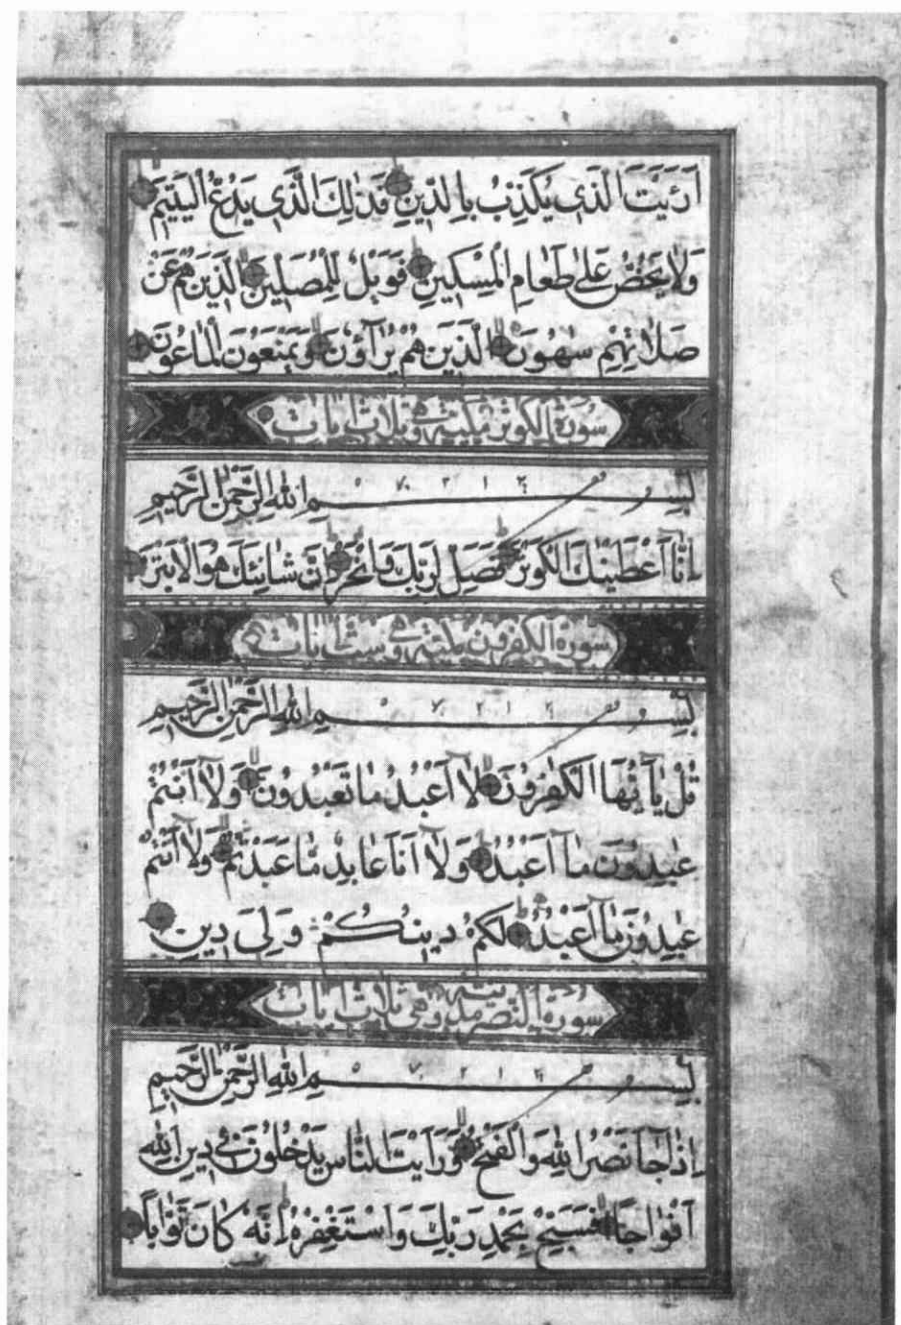 اَرَءَيْتَ الَّذِي يُكَذِّبُ بِالدِّينِ فَذٰلِكَ الَّذِي يَدُعُّ الْيَتِيمَ
وَلَا يَحُضُّ عَلٰى طَعَامِ الْمِسْكِينِ فَوَيْلٌ لِلْمُصَلِّينَ الَّذِينَ هُمْ عَنْ
صَلَاتِهِمْ سَاهُونَ الَّذِينَ هُمْ يُرَآؤُنَ وَيَمْنَعُونَ الْمَاعُونَ
سورة الكوثر مكية وهي ثلاث ايات
بِسْمِ اللهِ الرَّحْمٰنِ الرَّحِيمِ
اِنَّا اَعْطَيْنٰكَ الْكَوْثَرَ فَصَلِّ لِرَبِّكَ وَانْحَرْ اِنَّ شَانِئَكَ هُوَ الْاَبْتَرُ
سورة الكفرون مكية وهي ست ايات
بِسْمِ اللهِ الرَّحْمٰنِ الرَّحِيمِ
قُلْ يَآ اَيُّهَا الْكٰفِرُونَ لَا اَعْبُدُ مَا تَعْبُدُونَ وَلَآ اَنْتُمْ
عٰبِدُونَ مَآ اَعْبُدُ وَلَآ اَنَا عَابِدٌ مَا عَبَدْتُمْ وَلَآ اَنْتُمْ
عٰبِدُونَ مَآ اَعْبُدُ لَكُمْ دِينُكُمْ وَلِيَ دِينِ
سورة النصر مدنية وهي ثلاث ايات
بِسْمِ اللهِ الرَّحْمٰنِ الرَّحِيمِ
اِذَا جَآءَ نَصْرُ اللهِ وَالْفَتْحُ وَرَاَيْتَ النَّاسَ يَدْخُلُونَ فِي دِينِ اللهِ
اَفْوَاجًا فَسَبِّحْ بِحَمْدِ رَبِّكَ وَاسْتَغْفِرْهُ اِنَّهُ كَانَ تَوَّابًا